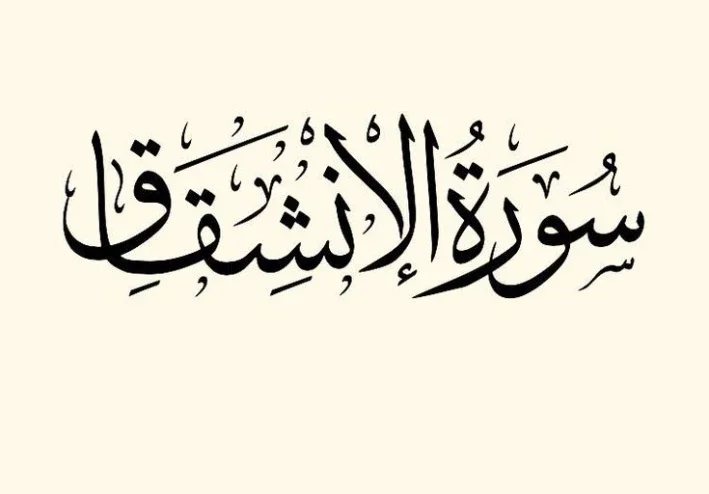 سُورَةُ الإِنْشِقَاقِ